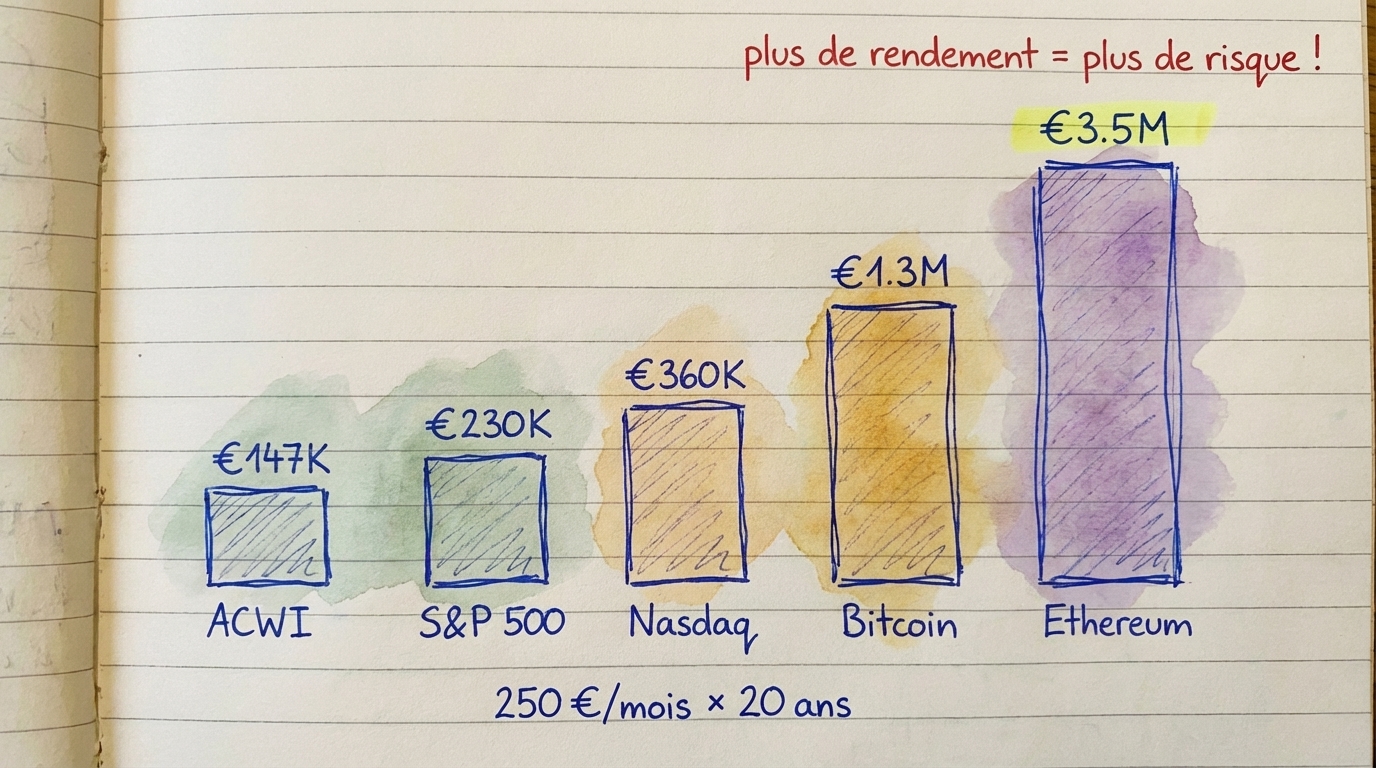 plus de rendement = plus de risque !
€3.5M
€1.3M
€360K
€230K
€147K
ACWI
S&P 500
Nasdaq
Bitcoin
Ethereum
250 €/mois × 20 ans